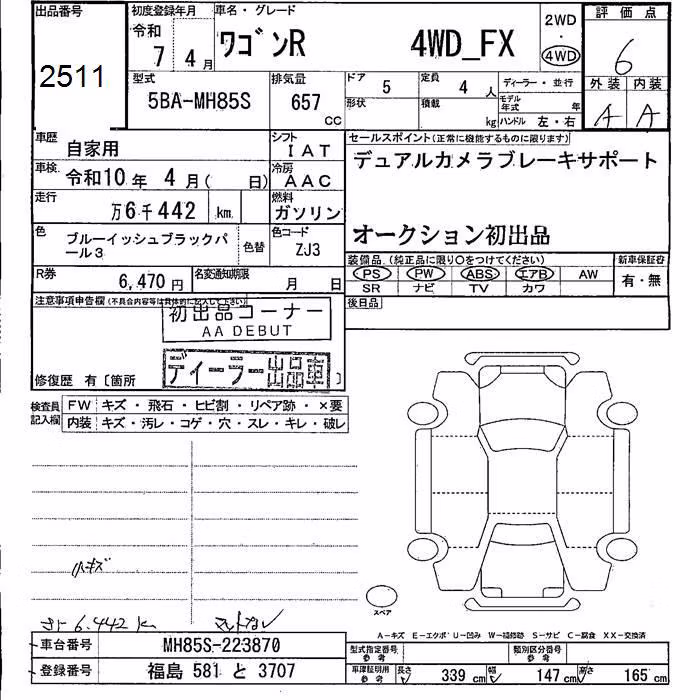 出品番号 2511
初度登録年月 令和 7年 4月
車名・グレード ワゴンR 4WD_FX
2WD
・
4WD
評価点 6
外装 内装
A A
型式 5BA-MH85S
排気量 657 CC
ドア 5
形状
定員 4人
積載 kg
ディーラー・並行
モデル年式 年
ハンドル 左・右
車歴 自家用
シフト IAT
車検 令和10年 4月( 日)
冷房 AAC
走行 万6千442 km
燃料 ガソリン
色 ブルーイッシュブラックパール3
色替
色コード ZJ3
R券 6,470円
名変通知期限 月 日
セールスポイント(正常に機能するものに限ります)
デュアルカメラブレーキサポート
オークション初出品
装備品(純正品に限り○をつけてください)
新車保証書
PS PW ABS エアB AW
有・無
SR ナビ TV カワ
後日品
注意事項申告欄(不具合内容等は具体的に記入して下さい)
初出品コーナー
AA DEBUT
ディーラー出品車
修復歴 有〔箇所 〕
検査員記入欄
FW キズ・飛石・ヒビ割・リペア跡・×要
内装 キズ・汚レ・コゲ・穴・スレ・キレ・破レ
小キズ
6.442 K
スペア
A-キズ E-エクボ U-凹み W-補修跡 S-サビ C-腐食 XX-交換済
車台番号 MH85S-223870
登録番号 福島 581 と 3707
型式指定番号 参考
類別区分番号 参考
車庫証明用 参考
長さ 339 cm
幅 147 cm
高さ 165 cm